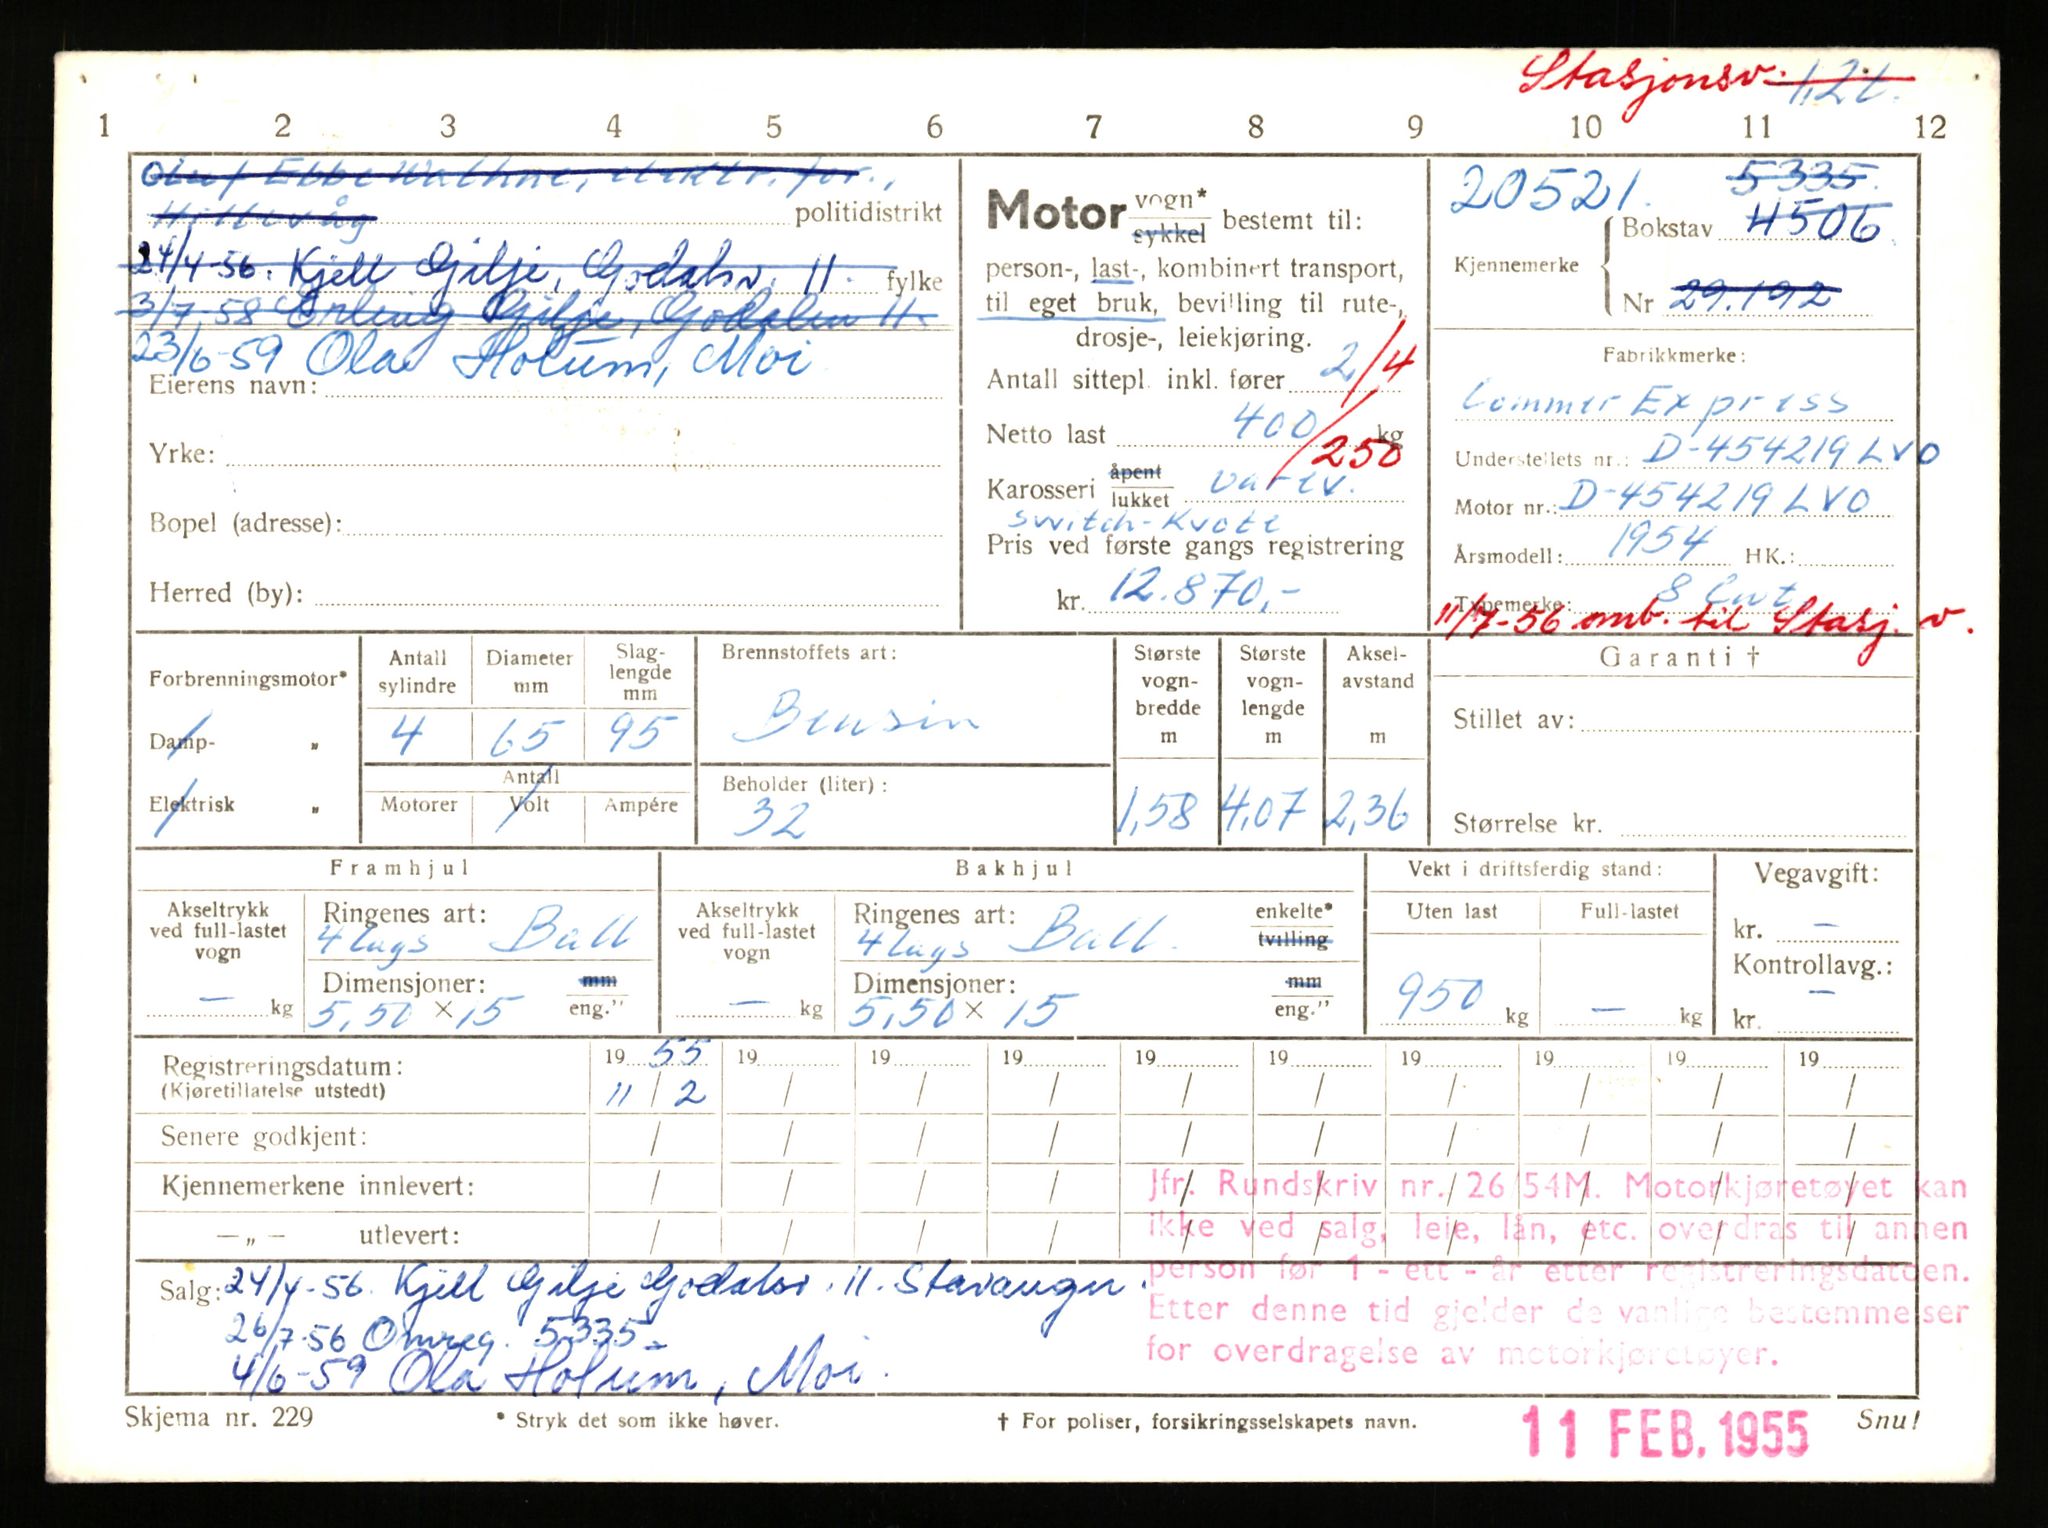 Stasjonsv. 1,2t.
1 2 3 4 5 6 7 8 9 10 11 12
Oluf Ebbe Wathne, elektr. for.,
Hillevåg politidistrikt
24/4-56. Kjell Gilje, Godalsv. 11. fylke
3/7-58 Erling Gilje, Godalsv 11.
23/6-59 Ola Holum, Moi
Eierens navn:
Yrke:
Bopel (adresse):
Herred (by):
Motor vogn* sykkel bestemt til:
person-, last-, kombinert transport,
til eget bruk, bevilling til rute-,
drosje-, leiekjøring.
Antall sittepl. inkl. fører 2/4
Netto last 400/250 kg
Karosseri åpent lukket varev.
switch-kvote
Pris ved første gangs registrering
kr. 12.870,-
20521. 5335.
Bokstav 4506
Kjennemerke
Nr 29.192
Fabrikkmerke:
Commer Express
Understellets nr.: D-454219 LVO
Motor nr.: D-454219 LVO
Årsmodell: 1954 HK.:
Typemerke: 8 Cwt
11/7-56 omb. til Stasj. v.
Forbrenningsmotor*
Damp- „
Elektrisk „
Antall sylindre
Diameter mm
Slag-lengde mm
4 65 95
Antall
Motorer Volt Ampére
Brennstoffets art:
Bensin
Beholder (liter):
32
Største vogn-bredde m
Største vogn-lengde m
Aksel-avstand m
1,58 4,07 2,36
Garanti †
Stillet av:
Størrelse kr.
Framhjul
Akseltrykk ved full-lastet vogn
— kg
Ringenes art:
4 lags Ball
Dimensjoner: mm
5,50 × 15 eng."
Bakhjul
Akseltrykk ved full-lastet vogn
— kg
Ringenes art: enkelte*
4 lags Ball. tvilling
Dimensjoner: mm
5,50 × 15 eng."
Vekt i driftsferdig stand:
Uten last Full-lastet
950 kg — kg
Vegavgift:
kr. —
Kontrollavg.:
—
kr.
Registreringsdatum: 19 55 19 19 19 19 19 19 19 19 19
(Kjøretillatelse utstedt) 11 / 2 / / / / / / / / /
Senere godkjent: / / / / / / / / / /
Kjennemerkene innlevert: / / / / / / / / / /
— „ — utlevert: / / / / / / / / / /
Jfr. Rundskriv nr. 26/54M. Motorkjøretøyet kan
ikke ved salg, leie, lån, etc. overdras til annen
person før 1 - ett - år etter registreringsdatoen.
Etter denne tid gjelder de vanlige bestemmelser
for overdragelse av motorkjøretøyer.
Salg: 24/4-56. Kjell Gilje Godalsv. 11. Stavanger.
26/7-56 Omreg. 5335.
4/6-59 Ola Holum, Moi.
Skjema nr. 229 * Stryk det som ikke høver. † For poliser, forsikringsselskapets navn. 11 FEB. 1955 Snu!